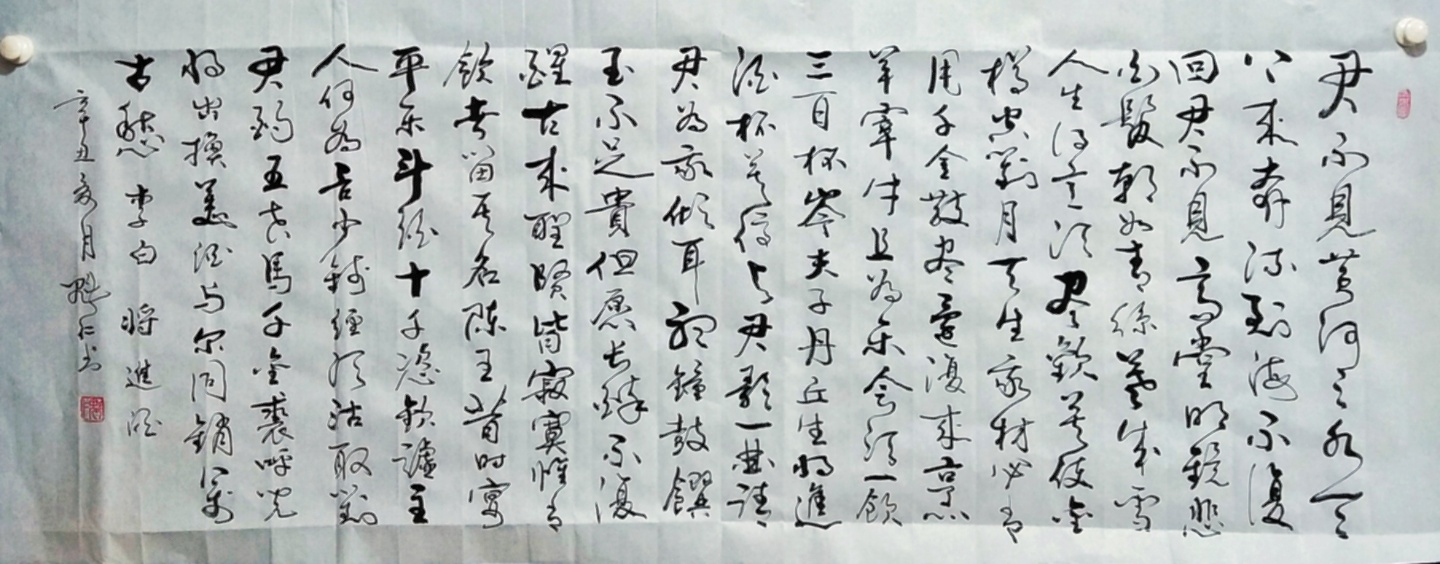 君不见黄河之水天
上来奔流到海不复
回君不見高堂明镜悲
白髮朝如青絲暮成雪
人生得意须尽歓莫使金
樽空對月天生我材必有
用千金散盡還復来烹
羊宰牛且為乐会須一飲
三百杯岑夫子丹丘生将進
酒杯莫停与君歌一曲請
君為我倾耳聽鐘鼓饌
玉不足貴但愿长醉不復
醒古来聖賢皆寂寞惟有
飲者留其名陳王昔時宴
平乐斗酒十千恣歓謔主
人何為言少錢徑须沽取對
君酌五花馬千金裘呼兒
将出換美酒与尔同銷萬
古愁 李白 將進酒
辛丑 月 仁书